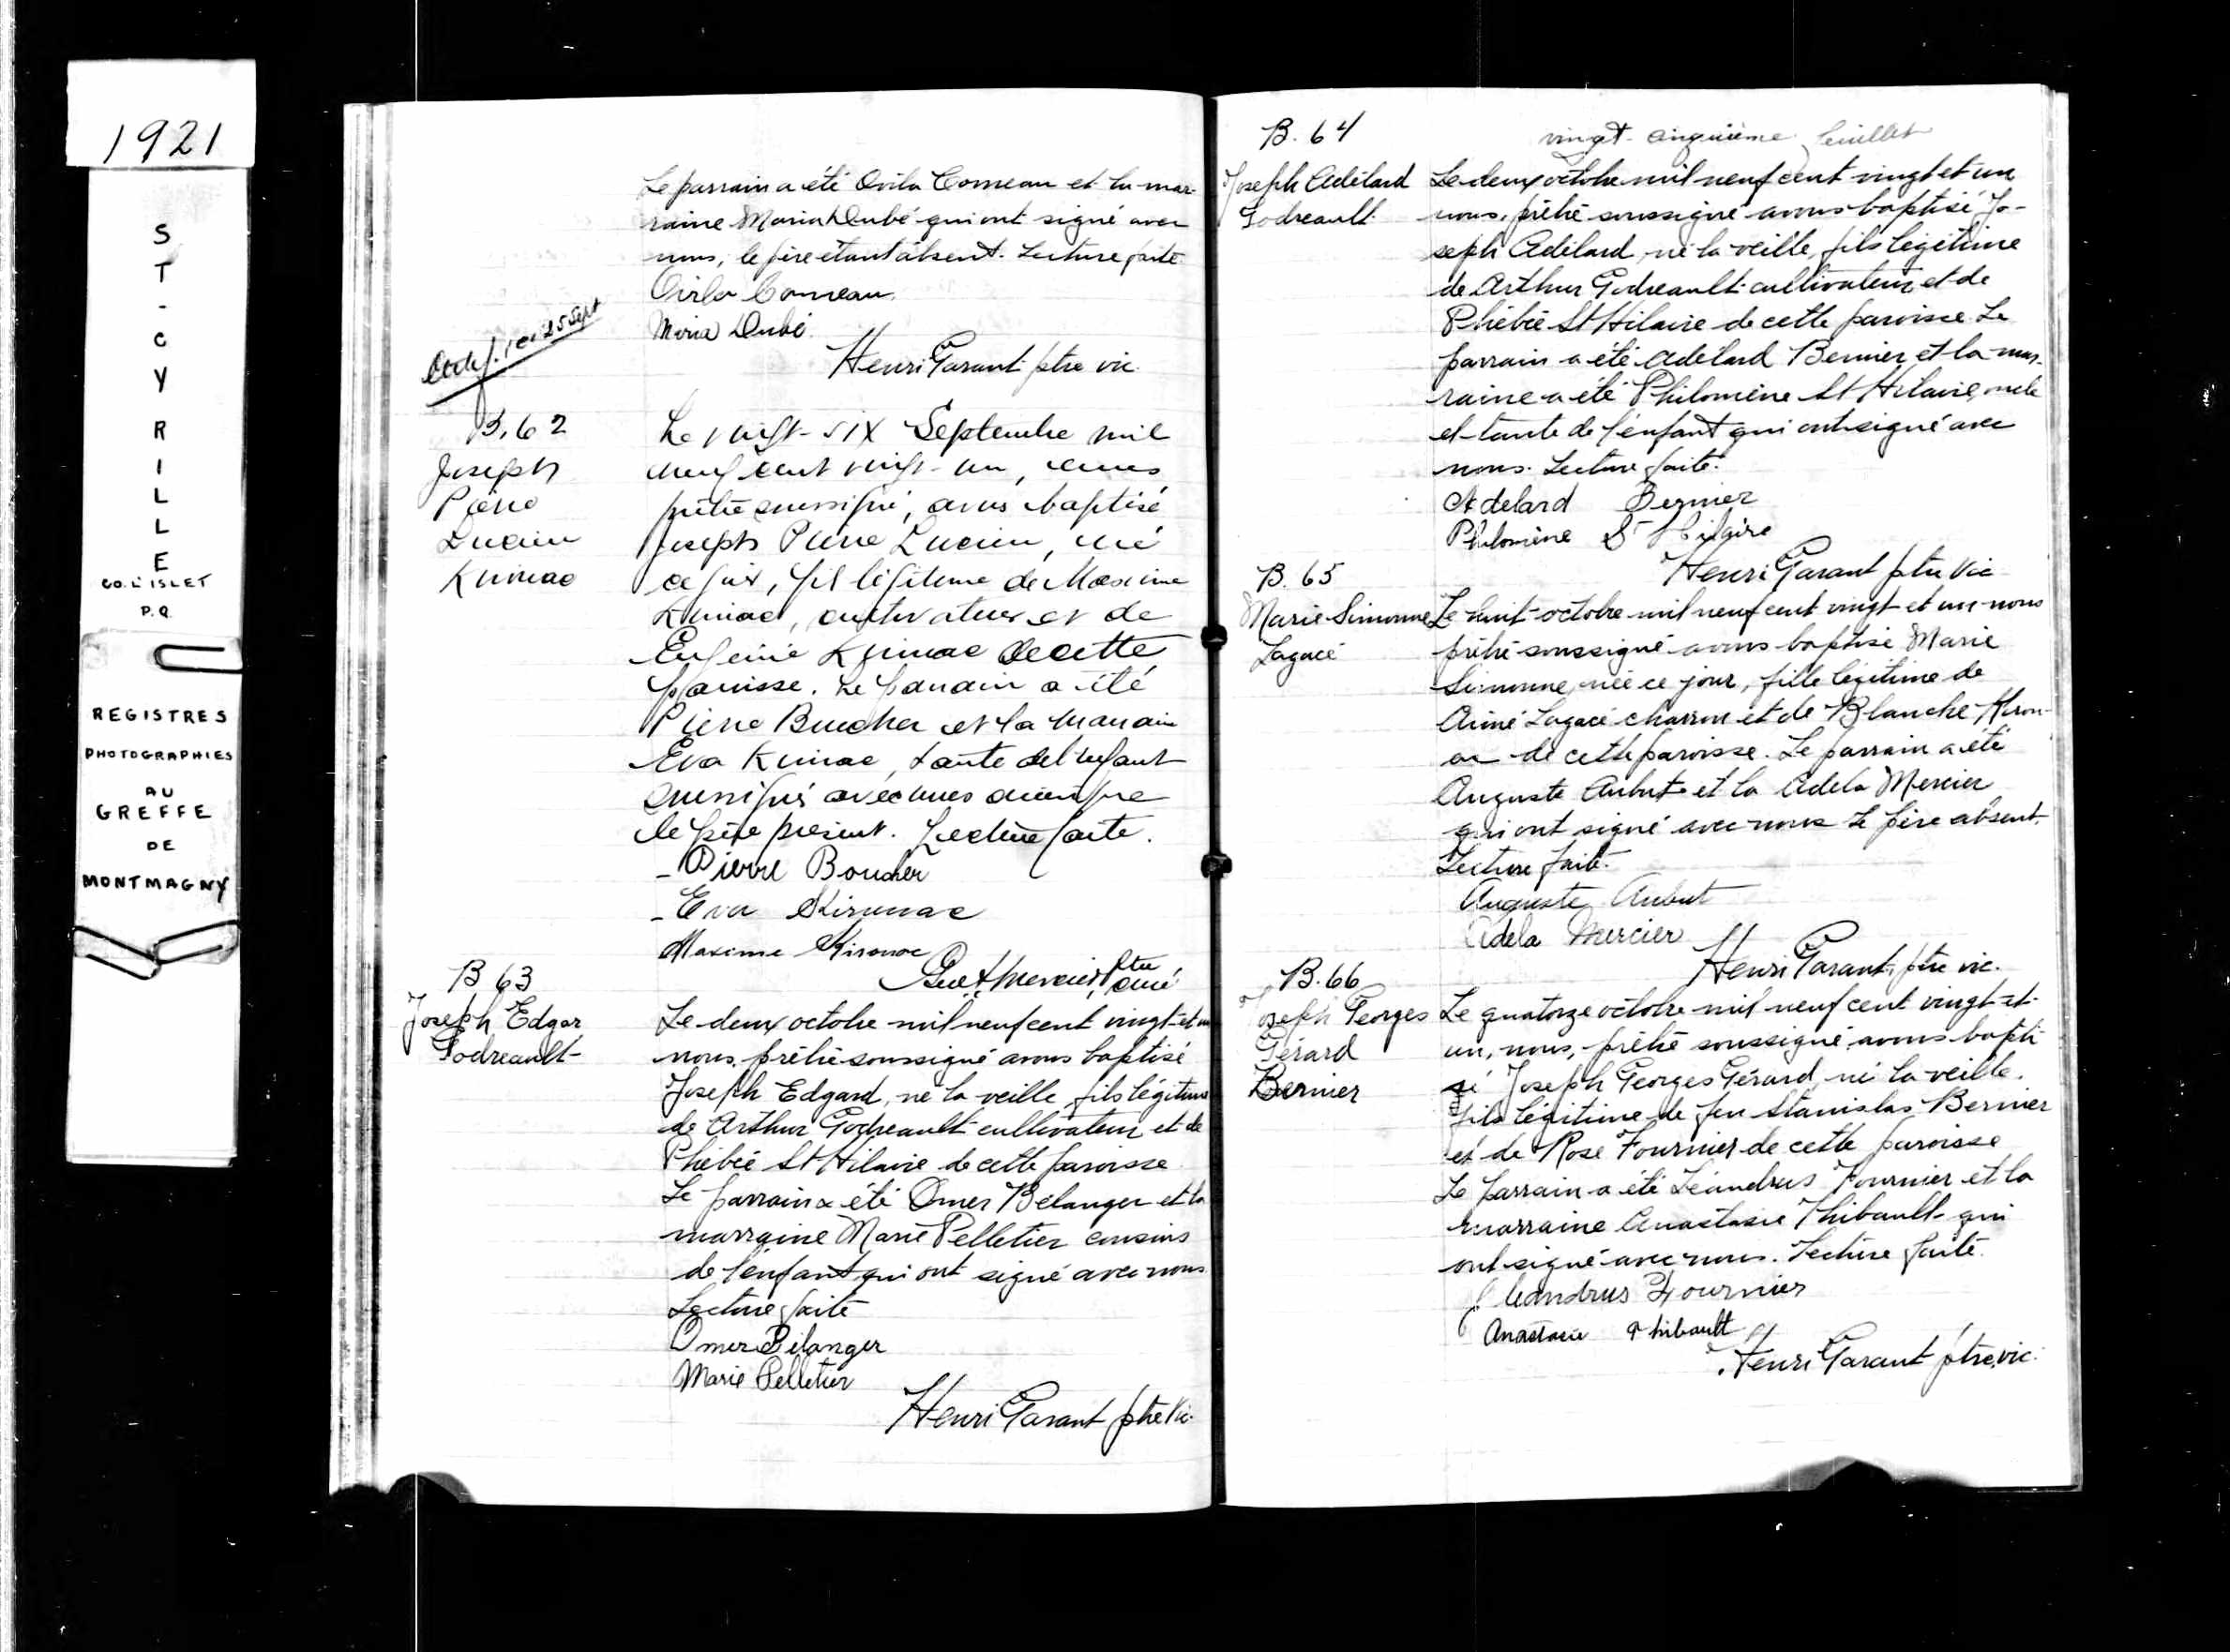 1921
ST-CYRILLE
CO. L'ISLET
P.Q.
REGISTRES
PHOTOGRAPHIES
AU
GREFFE
DE
MONTMAGNY
Le parrain a été Ovila Comeau et la mar-
raine Maria Dubé qui ont signé avec
nous, le père étant absent. Lecture faite.
Ovila Comeau
Maria Dubé
Henri Garant ptre vic.
25 Sept
B. 62
Joseph
Pierre
Lucien
Kirouac
Le vingt-six Septembre mil
neuf cent vingt-un, nous
prêtre soussigné, avons baptisé
Joseph Pierre Lucien, né
ce jour, fils légitime de Maxime
Kirouac, cultivateur et de
Eugénie Kirouac de cette
paroisse. Le parrain a été
Pierre Boucher et la marraine
Eva Kirouac, tante de l'enfant
soussignés avec nous ainsi que
le père présent. Lecture faite.
Pierre Boucher
Eva Kirouac
Maxime Kirouac
Mercier ptre curé
B 63
Joseph Edgar
Godreault
Le deux octobre mil neuf cent vingt-et un
nous, prêtre soussigné avons baptisé
Joseph Edgard, né la veille, fils légitime
de Arthur Godreault cultivateur et de
Phébée St Hilaire de cette paroisse
Le parrain a été Omer Bélanger et la
marraine Marie Pelletier cousins
de l'enfant qui ont signé avec nous
Lecture faite
Omer Bélanger
Marie Pelletier
Henri Garant ptre Vic.
vingt-cinquième feuillet
B. 64
Joseph Adélard
Godreault
Le deux octobre mil neuf cent vingt et un
nous, prêtre soussigné avons baptisé Jo-
seph Adélard, né la veille, fils légitime
de Arthur Godreault cultivateur et de
Phébée St Hilaire de cette paroisse. Le
parrain a été Adélard Bernier et la mar-
raine a été Philomène St Hilaire, oncle
et tante de l'enfant qui ont signé avec
nous. Lecture faite.
Adelard Bernier
Philomène St Hilaire
Henri Garant ptre Vic
B. 65
Marie Simonne
Lagacé
Le huit octobre mil neuf cent vingt et un nous
prêtre soussigné avons baptisé Marie
Simonne, née ce jour, fille légitime de
Aimé Lagacé charron et de Blanche Kirou-
ac de cette paroisse. Le parrain a été
Auguste Aubut et la Adela Mercier
qui ont signé avec nous Le père absent.
Lecture faite.
Auguste Aubut
Adela Mercier
Henri Garant, ptre vic.
B. 66
Joseph Georges
Gérard
Bernier
Le quatorze octobre mil neuf cent vingt et
un, nous, prêtre soussigné avons bapti-
sé Joseph Georges Gérard, né la veille.
fils légitime de feu Stanislas Bernier
et de Rose Fournier de cette paroisse
Le parrain a été Léandrus Fournier et la
marraine Anastasie Thibault qui
ont signé avec nous. Lecture faite.
Leandrus Fournier
Anastasie Thibault
Henri Garant ptre vic.